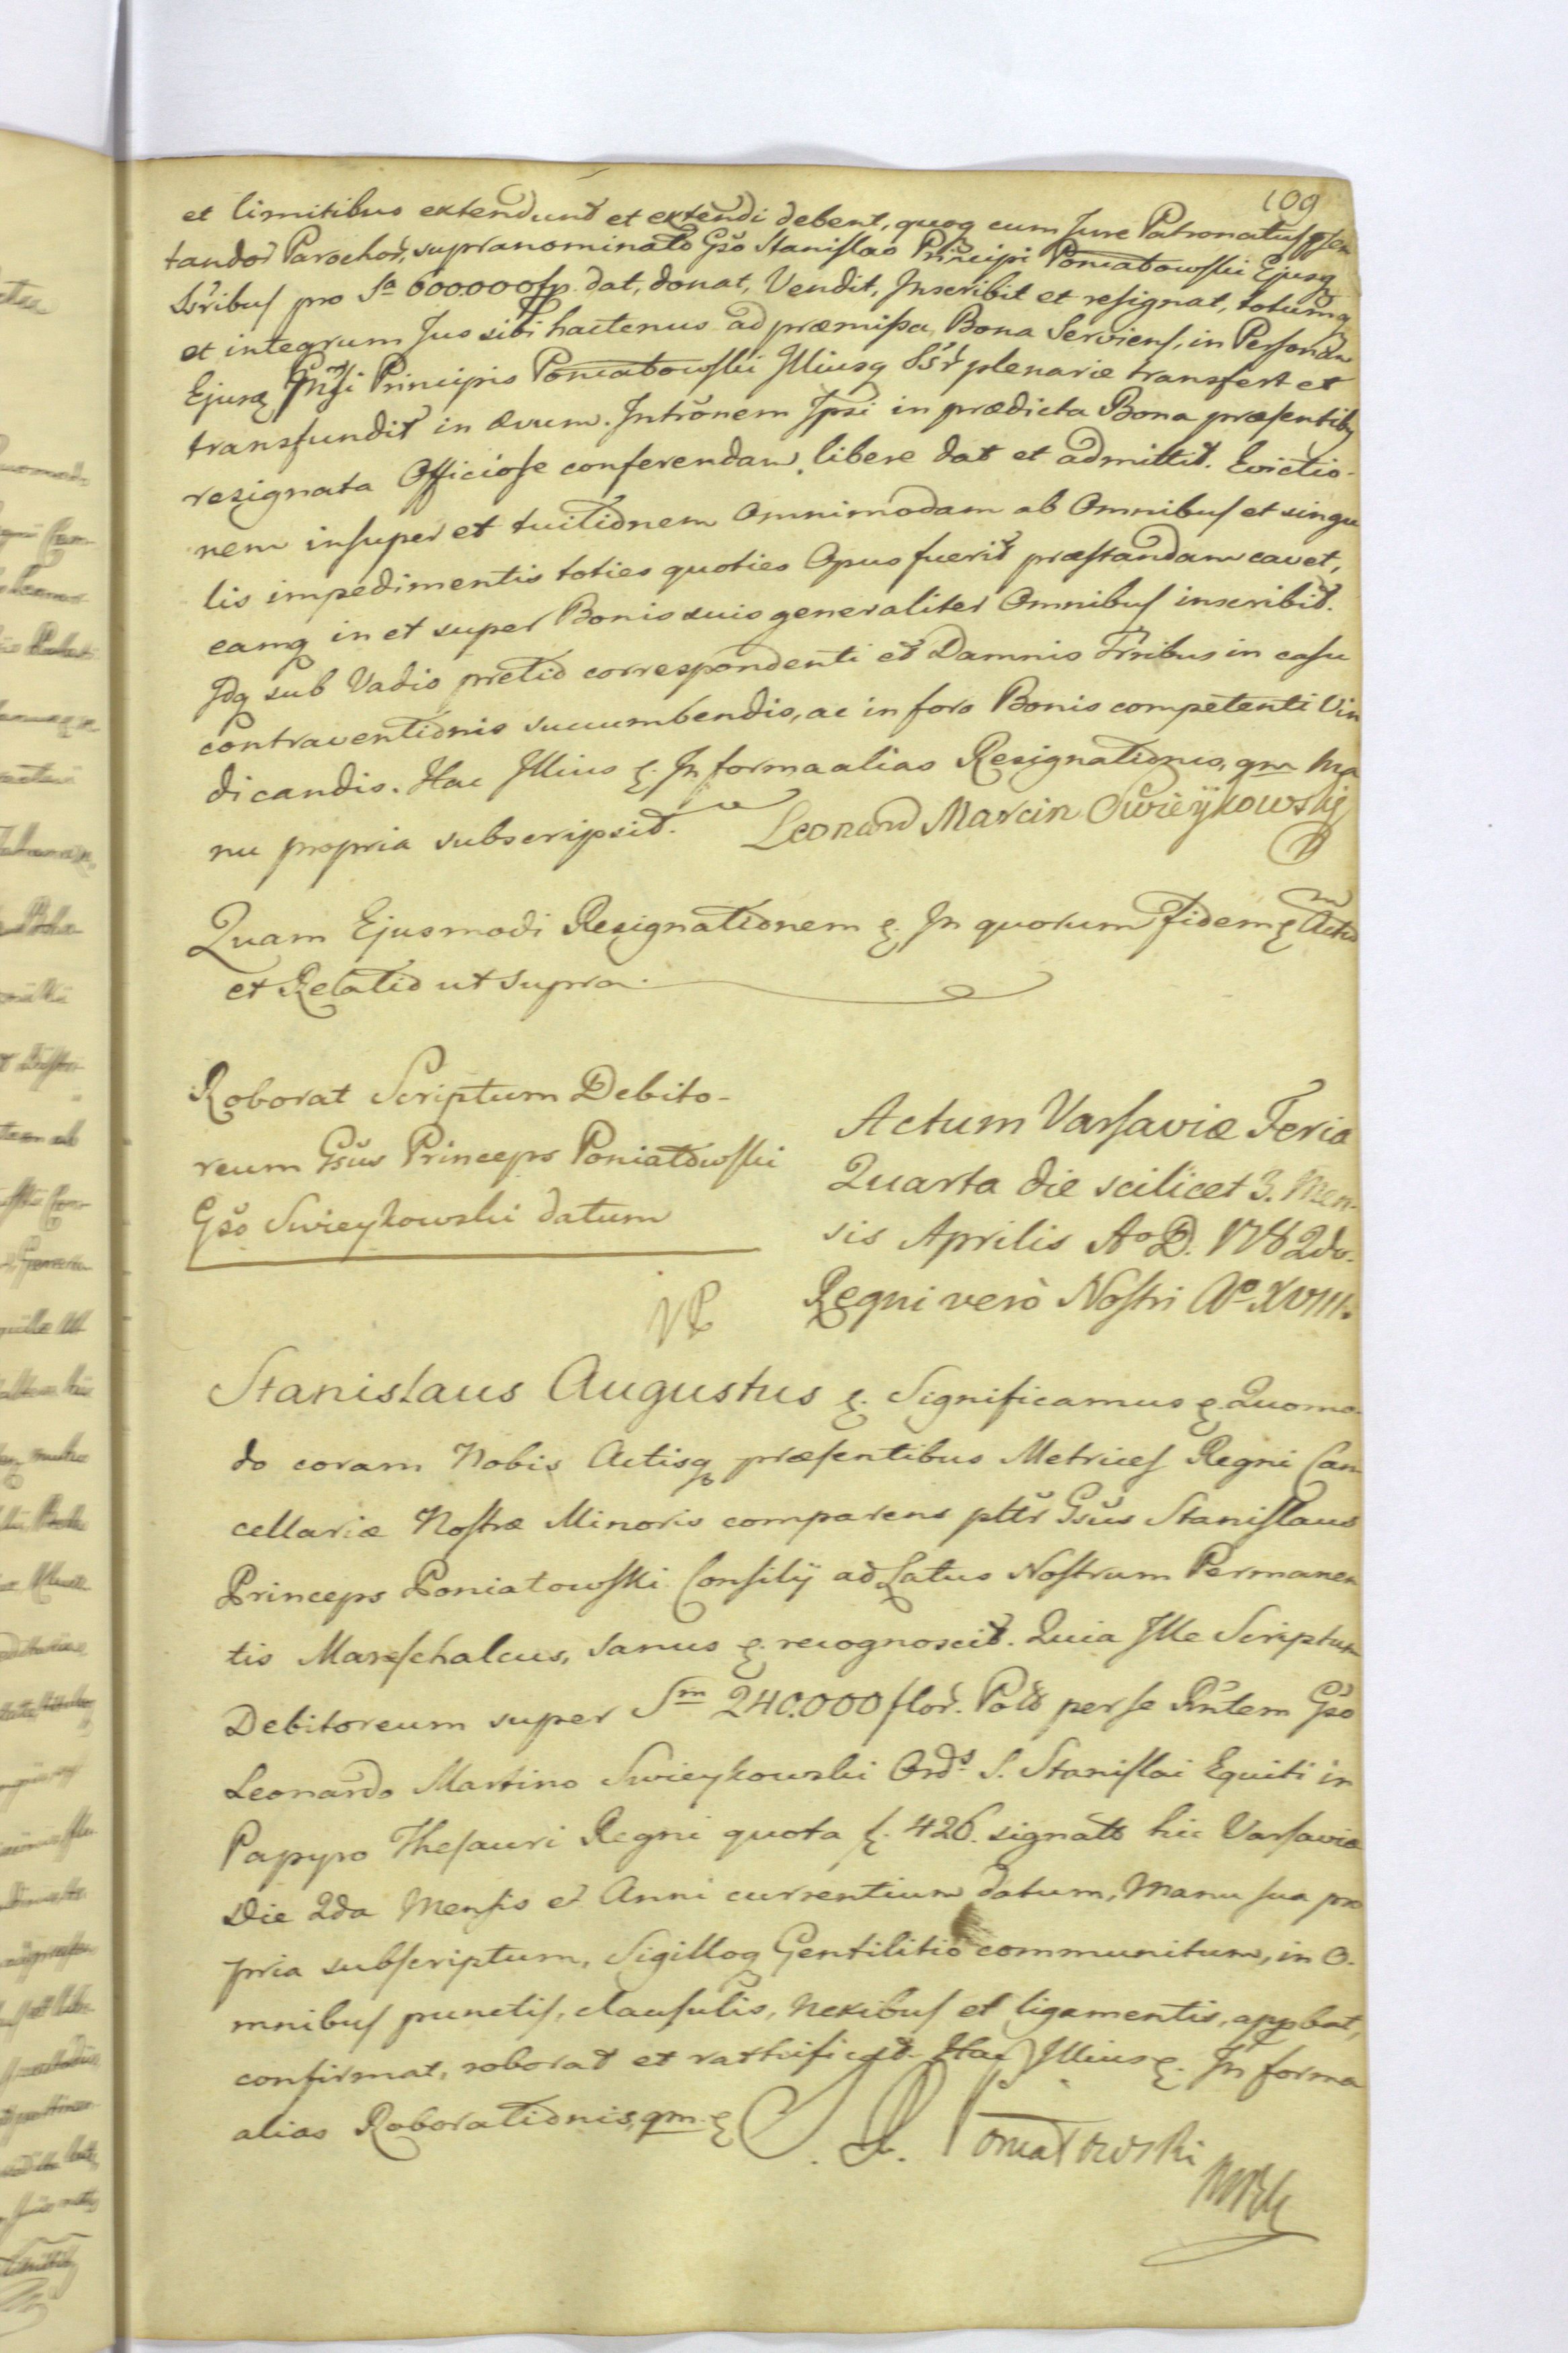 109
et limitibus extendunt et extendi debent, quoq cum Jure Patronatus psen
tandor Parochor, supranominato Gso Stanislao Principi Poniatowski Ejusq
Ssribus pro Sa 600.000 fp. dat, donat, Vendit, Inscribit et resignat, totumq
et integrum Jus sibi hactenus ad præmissa Bona Serviens, in Personam
Ejusq Principis Poniatowski Illiusq Ssr plenarie transfert et
transfundit in ævum. Intronem Ipsi in prædicta Bona præsentibq
resignata Officiose conferendam, libere dat et admittit. Evictio-
nem insuper et tuitionem Omnimodam ab Omnibus et singu
lis impedimentis toties quoties Opus fuerit præstandam cavet,
eamq in et super Bonis suis generaliter Omnibus inscribit.
Idq sub Vadio pretio correspondenti et Damnis Trribus in casu
contraventionis succumbendis, ac in foro Bonis competenti Vin
dicandis. Hac Illius &. In forma alias Resignationis, qm Ma
nu propria subscripsit. Leonard Marcin Swieykowski
Quam Ejusmodi Resignationem &. In quorum fidem & Actum
et Relatio ut supra.
Roborat Scriptum Debito-
reum Gsus Princeps Poniatowski
Gso Swieykowski datum
Actum Varsaviæ Feria
Quarta die scilicet 3. Men-
sis Aprilis Ao D. 1782do.
Regni verò Nostri Ao XVIII.
Stanislaus Augustus &. Significamus &. Quomo-
do coram Nobis Actisq præsentibus Metrices Regni Can
cellariæ Nostræ Minoris comparens pttr Gsus Stanislaus
Princeps Poniatowski Consilij ad Latus Nostrum Permanen
tis Mareschalcus, sanus &. recognoscit. Quia Ille Scriptum
Debitoreum super Sm 240.000 flor. Pol per se Rntem Gso
Leonardo Martino Swieykowski Ords S. Stanislai Equiti in
Papyro Thesauri Regni quota f. 426. signato hic Varsaviæ
Die 2da Mensis et Anni currentium datum, Manu sua pro
pria subscriptum, Sigilloq Gentilitio communitum, in O-
mnibus punctis, clausulis, nexibus et ligamentis, appbat,
confirmat, roborat et rathificat. Hac Illius &. In forma
alias Roborationis, qm. &
S. P. Poniatowski